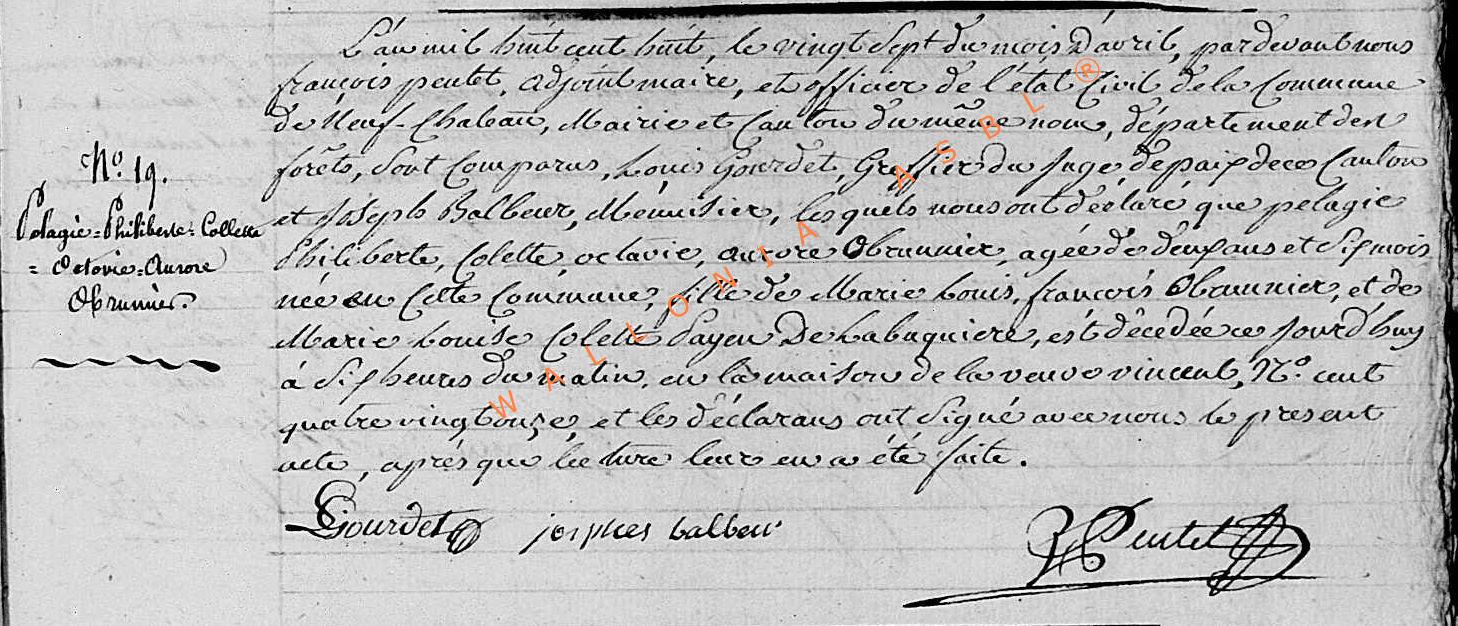 L'an mil huit cent huit, le vingt Sept du mois D'avril, pardevant nous
françois pentet, adjoint maire, et officier de l'état Civil de la Commune
de Neuf-Chateau, Mairie et Canton du même nom, département des
forêts, Sont Comparus, Louis Gourdet, Greffier du Juge de paix de ce Canton
et Joseph Balbeur, Menuisier, lesquels nous ont déclaré que pelagie
Philiberte, Colette, octavie, aurore Obrunnier, agée de deux ans et Six mois
née en Cette Commune, fille de Marie Louis, françois Obrunnier, et de
Marie Louise Colette Payen De Labuquiere, est décedée ce jourd'huy
à Six heures du matin, en la maison de la veuve vincent, N.o cent
quatre vingt onze, et les déclarans ont Signé avec nous le present
acte, après que lecture leur en a été faite.
N.o 19.
Pelagie=Philiberte=Collette
=octavie=Aurore
Obrunier.
WALLONIA ASBL ®
Gourdet
josphes balbeur
Pentet